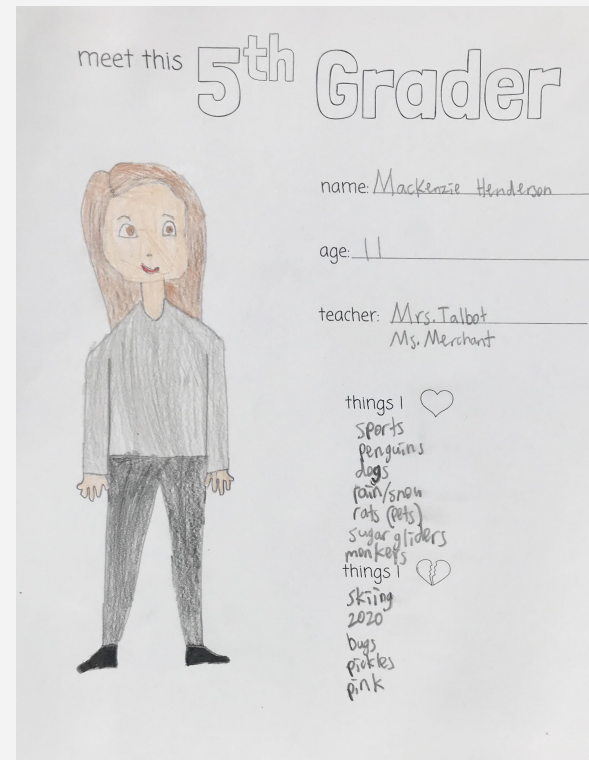 meet this 5th Grader
name: Mackenzie Henderson
age: 11
teacher: Mrs. Talbot
Ms. Merchant
things I
sports
penguins
dogs
rain/snow
rats (pets)
sugar gliders
monkeys
things I
skiing
2020
bugs
pickles
pink